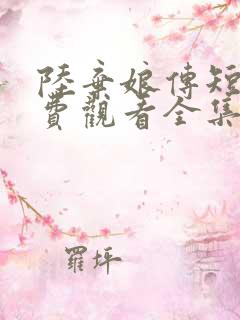 陸棄娘傳短
費觀看全集
羅坪